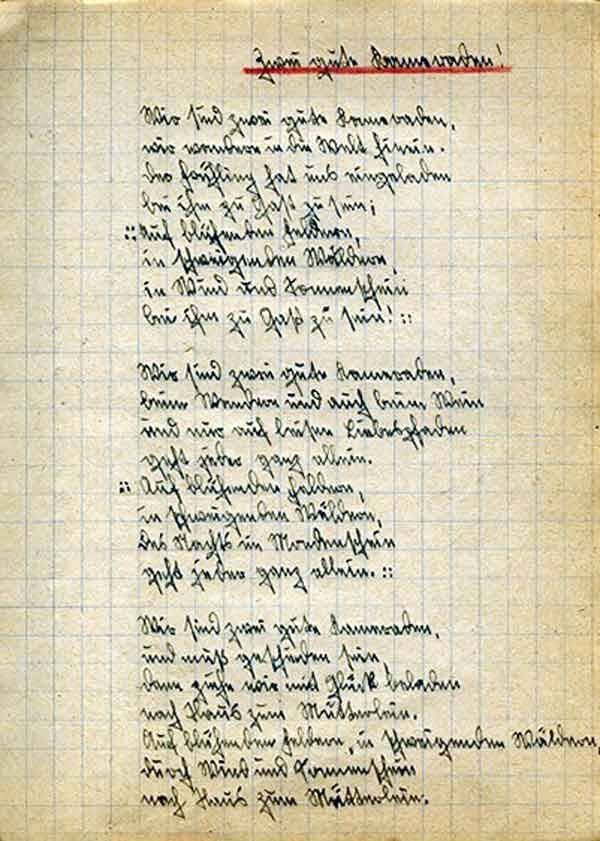 Zwei gute Kameraden!
Wir sind zwei gute Kameraden,
wir wandern in die Welt hinein.
der Frühling hat uns eingeladen
bei ihm zu Gast zu sein;
:: Auf blühenden Feldern,
in schweigenden Wäldern,
in Wind und Sonnenschein
bei ihm zu Gast zu sein! ::
Wir sind zwei gute Kameraden,
beim Wandern und auch beim Wein
und nur auf leisen Liebespfaden
geht jeder ganz allein.
:: Auf blühenden Feldern,
in schweigenden Wäldern,
des Nachts im Mondenschein
geht jeder ganz allein. ::
Wir sind zwei gute Kameraden,
und muß geschieden sein,
dann ziehn wir mit Glück beladen
nach Haus zum Mütterlein.
Auf blühenden Feldern, in schweigenden Wäldern,
durch Wind und Sonnenschein
nach Haus zum Mütterlein.